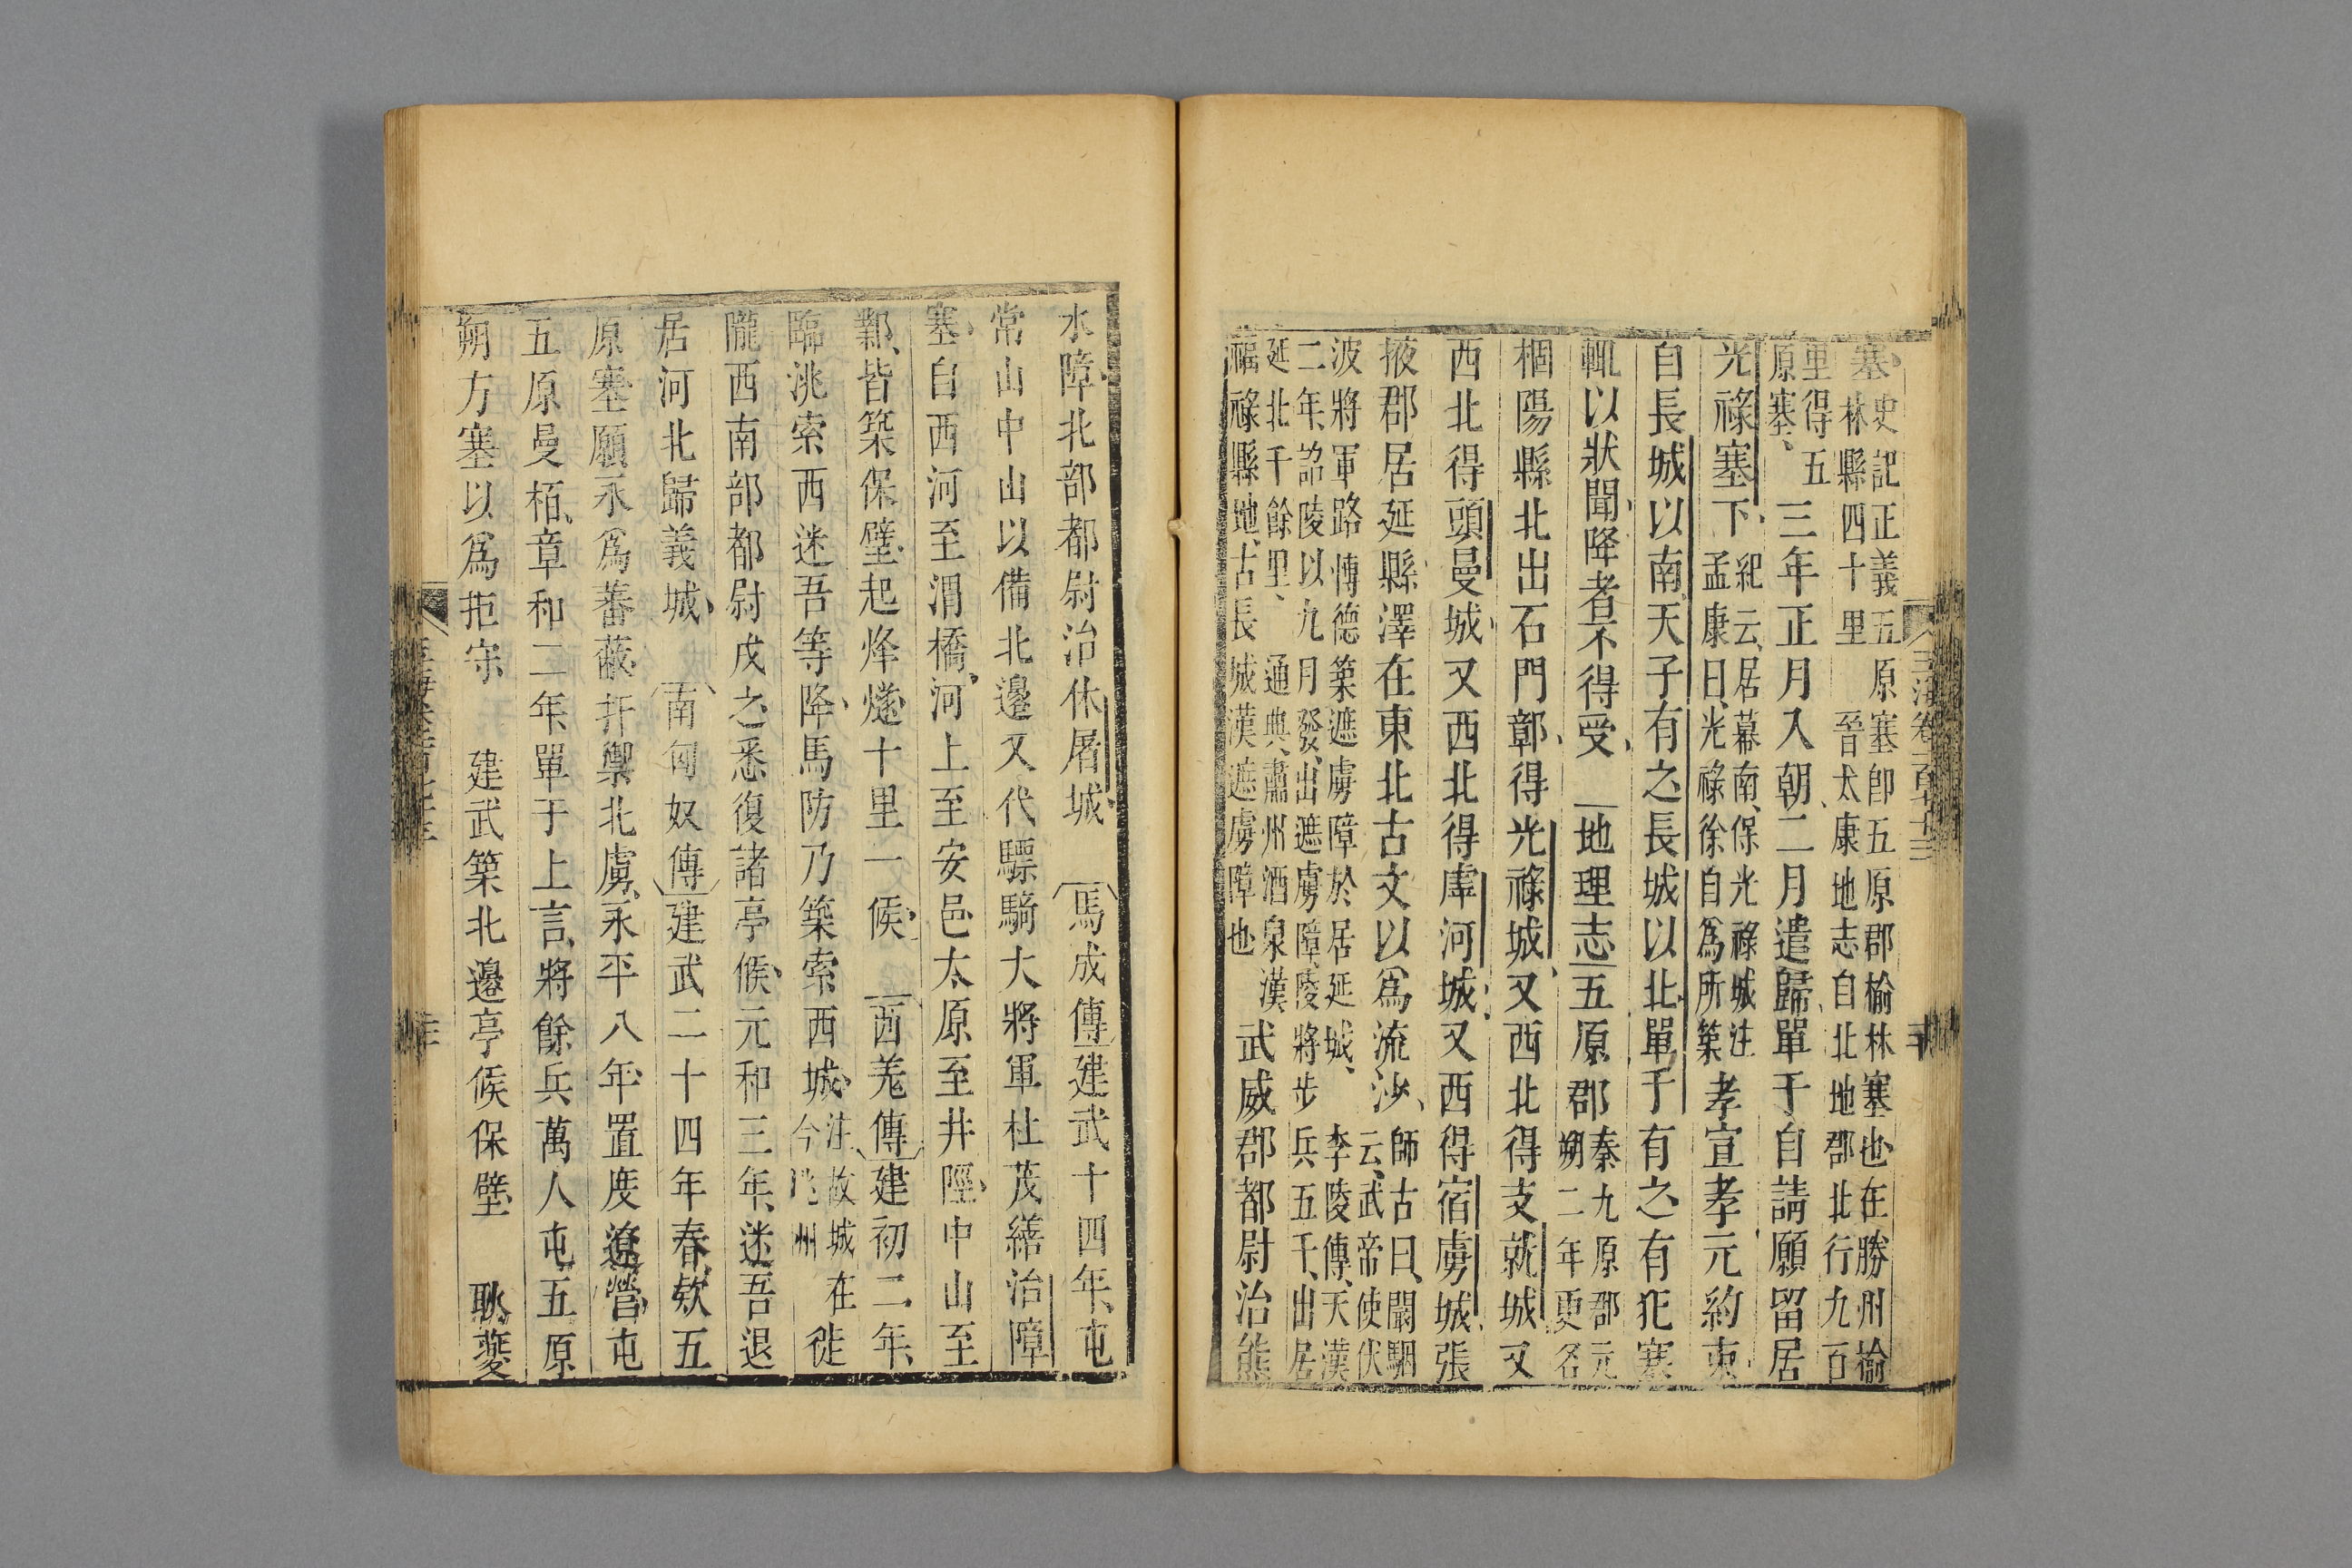 塞史記正義五原塞卽五原郡榆林塞也在勝州榆
林縣四十里 晉太康地志自北地郡北行九百
里得五
原塞三年正月入朝二月遣歸單于自請願留居
光祿塞下紀云居幕南保光祿城注
孟康曰光祿徐自爲所築孝宣孝元約束
自長城以南天子有之長城以北單于有之有犯塞
輒以狀聞降者不得受 地理志五原郡秦九原郡元
朔二年更名
稒陽縣北出石門鄣得光祿城又西北得支就城又
西北得頭曼城又西北得虖河城又西得宿虜城張
掖郡居延縣澤在東北古文以爲流沙師古曰闞駰
云武帝使伏
波將軍路博德築遮虜障於居延城 李陵傳天漢
二年詔陵以九月發出遮虜障陵將步兵五千出居
延北千餘里 通典肅州酒泉漢
福祿縣地古長城漢遮虜障也武威郡都尉治熊
水障北部都尉治休屠城 馬成傳建武十四年屯
常山中山以備北邊又代驃騎大將軍杜茂繕治障
塞自西河至渭橋河上至安邑太原至井陘中山至
鄴皆築保壁起烽燧十里一候 西羌傳建初二年
臨洮索西迷吾等降馬防乃築索西城注故城在
今洮州徙
隴西南部都尉戍之悉復諸亭候元和三年迷吾退
居河北歸義城 南匈奴傳建武二十四年春欵五
原塞願永爲蕃蔽扞禦北虜永平八年置度遼營屯
五原曼栢章和二年單于上言將餘兵萬人屯五原
朔方塞以爲拒守 建武築北邊亭候保壁 耿夔